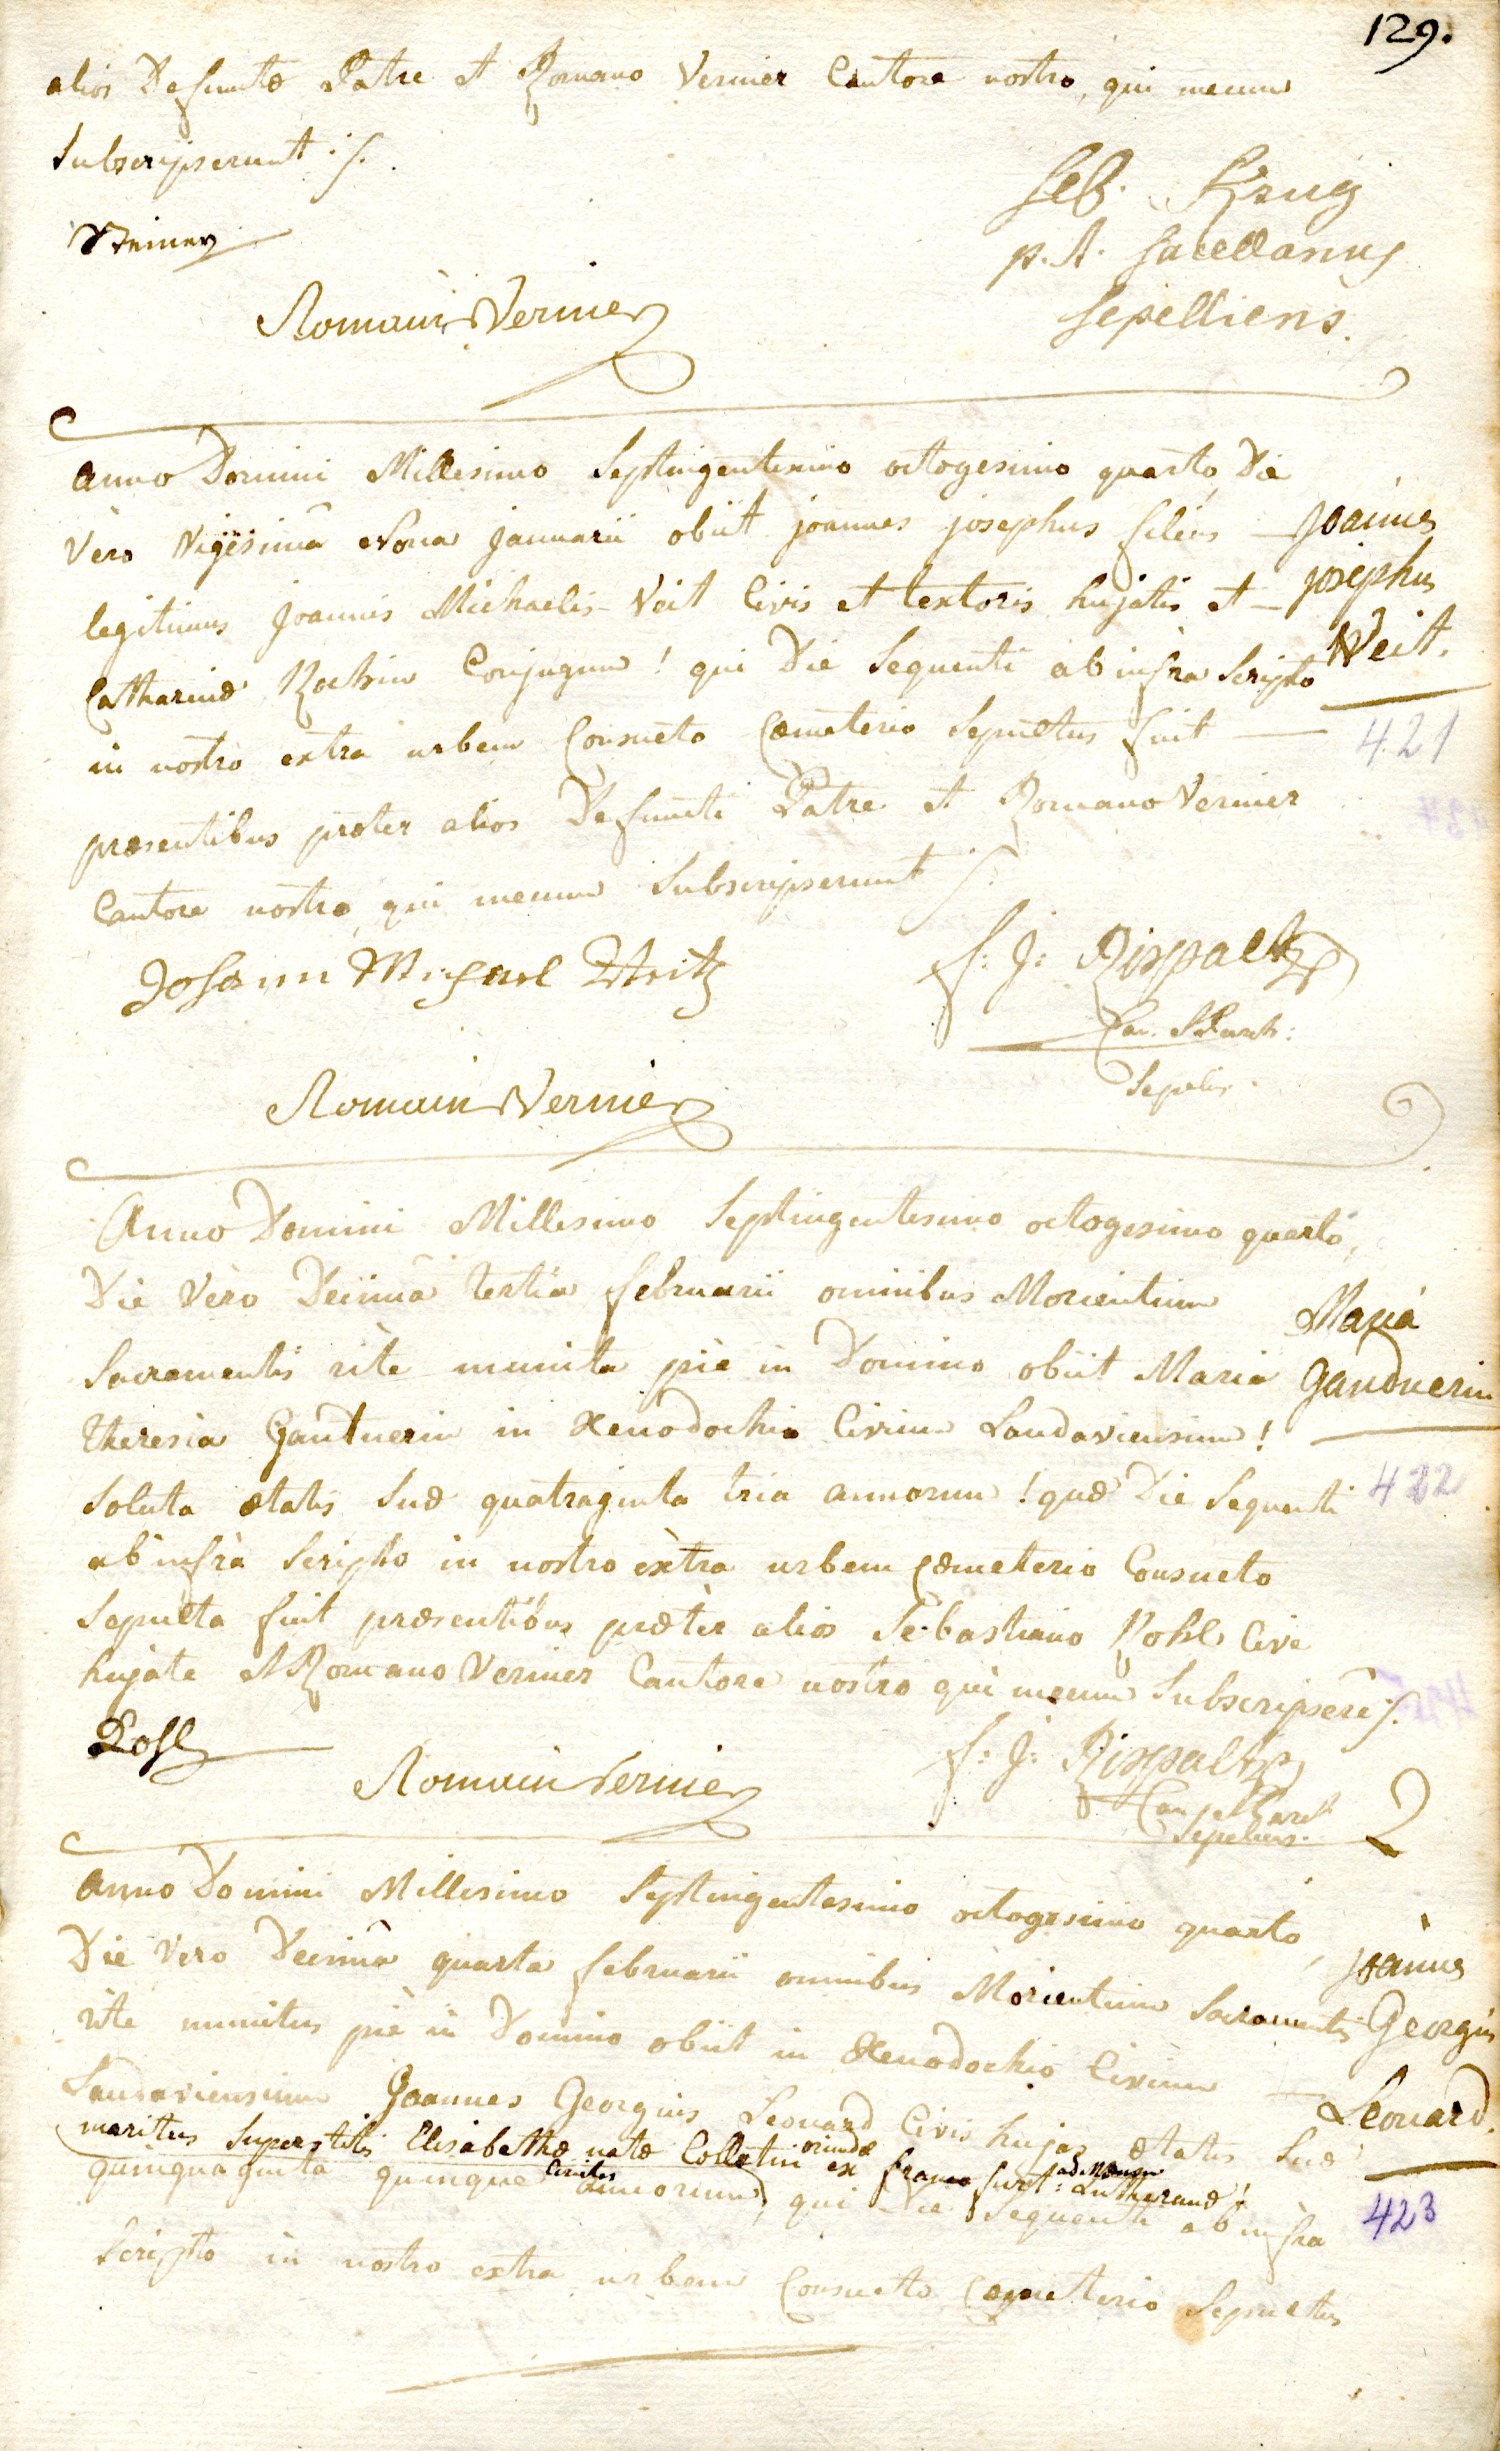 129.
alios Defunctæ Patre et Romano Vernier Cantore nostro, qui mecum
Subscripserunt ·/.
Steiner
Seb. Krug
p. t. Sacellanus
Sepelliens.
Romain Vernier
Anno Domini Millesimo Septingentesimo octogesimo quarto, Die
Vero Vigesimâ Nona Januarii obiit joannes josephus filius
legitimus Joannis Michaelis Veit Civis et textoris hujatis et
Catharinæ Conjugum! qui Die Sequenti ab infra Scripto
in nostro extra urbem Consueto Cœmeterio Sepultus fuit
præsentibus præter alios Defuncti Patre et Romano Vernier
Cantore nostro, qui mecum Subscripserunt ·/.
Joannes
josephus
Weit.
421
Johann Michael
F: J: Rixpaltz
Can.
Sepelis.
Romain Vernier
Anno Domini Millesimo Septingentesimo octogesimo quarto,
Die Vero Decimâ tertia Februarii omnibus Morientium
Sacramentis rite munita pie in Domino obiit Maria
Theresia Gantnerin in Xenodochio Civium Landaviensium!
Soluta ætatis Suæ quatraginta tria annorum! quæ Die Sequenti
ab infra Scripto in nostro extra urbem Cœmeterio Consueto
Sepulta fuit præsentibus præter alios Sebastiano Pohl Cive
hujate et Romano Vernier Cantore nostro qui mecum Subscripsere ·/.
Maria
Gandnerin
422
Pohl
Romain Vernier
F: J: Rixpaltz
Can.
Sepeliens.
Anno Domini Millesimo Septingentesimo octogesimo quarto,
Die Vero Decimâ quarta Februarii omnibus Morientium Sacramentis
rite munitus pie in Domino obiit in Xenodochio Civium
Landaviensium Joannes Georgius Leonard Civis hujas ætatis Suæ
maritus Superstitis Elisabethæ natæ Colletin oriundæ ex Francofurt: ad Mœnum Lutheranæ!
quinquaginta quinque annorum, qui Die Sequenti ab infra
Scripto in nostro extra urbem Consueto Cœmeterio Sepultus
Joannes
Georgius
Leonard.
423